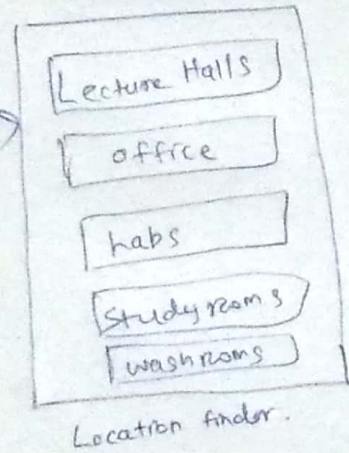 Lecture Halls
office
Labs
Study rooms
washrooms
Location finder.